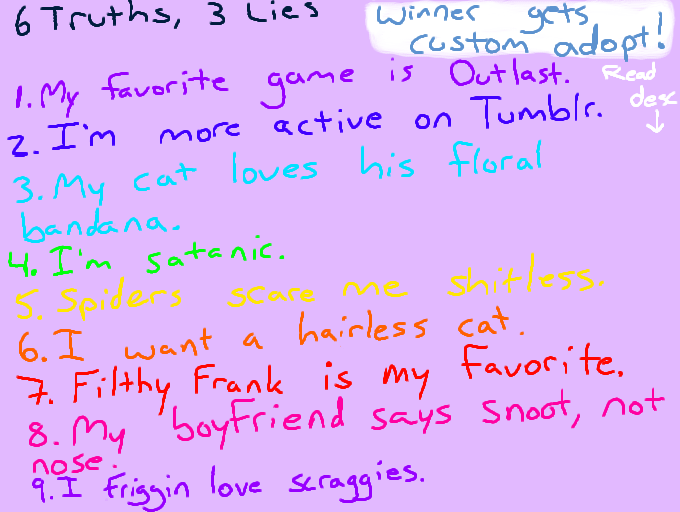 6 Truths, 3 Lies
Winner gets
custom adopt!
Read
desc
1. My favorite game is Outlast.
2. I'm more active on Tumblr.
3. My cat loves his floral
bandana.
4. I'm satanic.
5. Spiders scare me shitless.
6. I want a hairless cat.
7. Filthy Frank is my favorite.
8. My boyfriend says snoot, not
nose.
9. I friggin love scraggies.